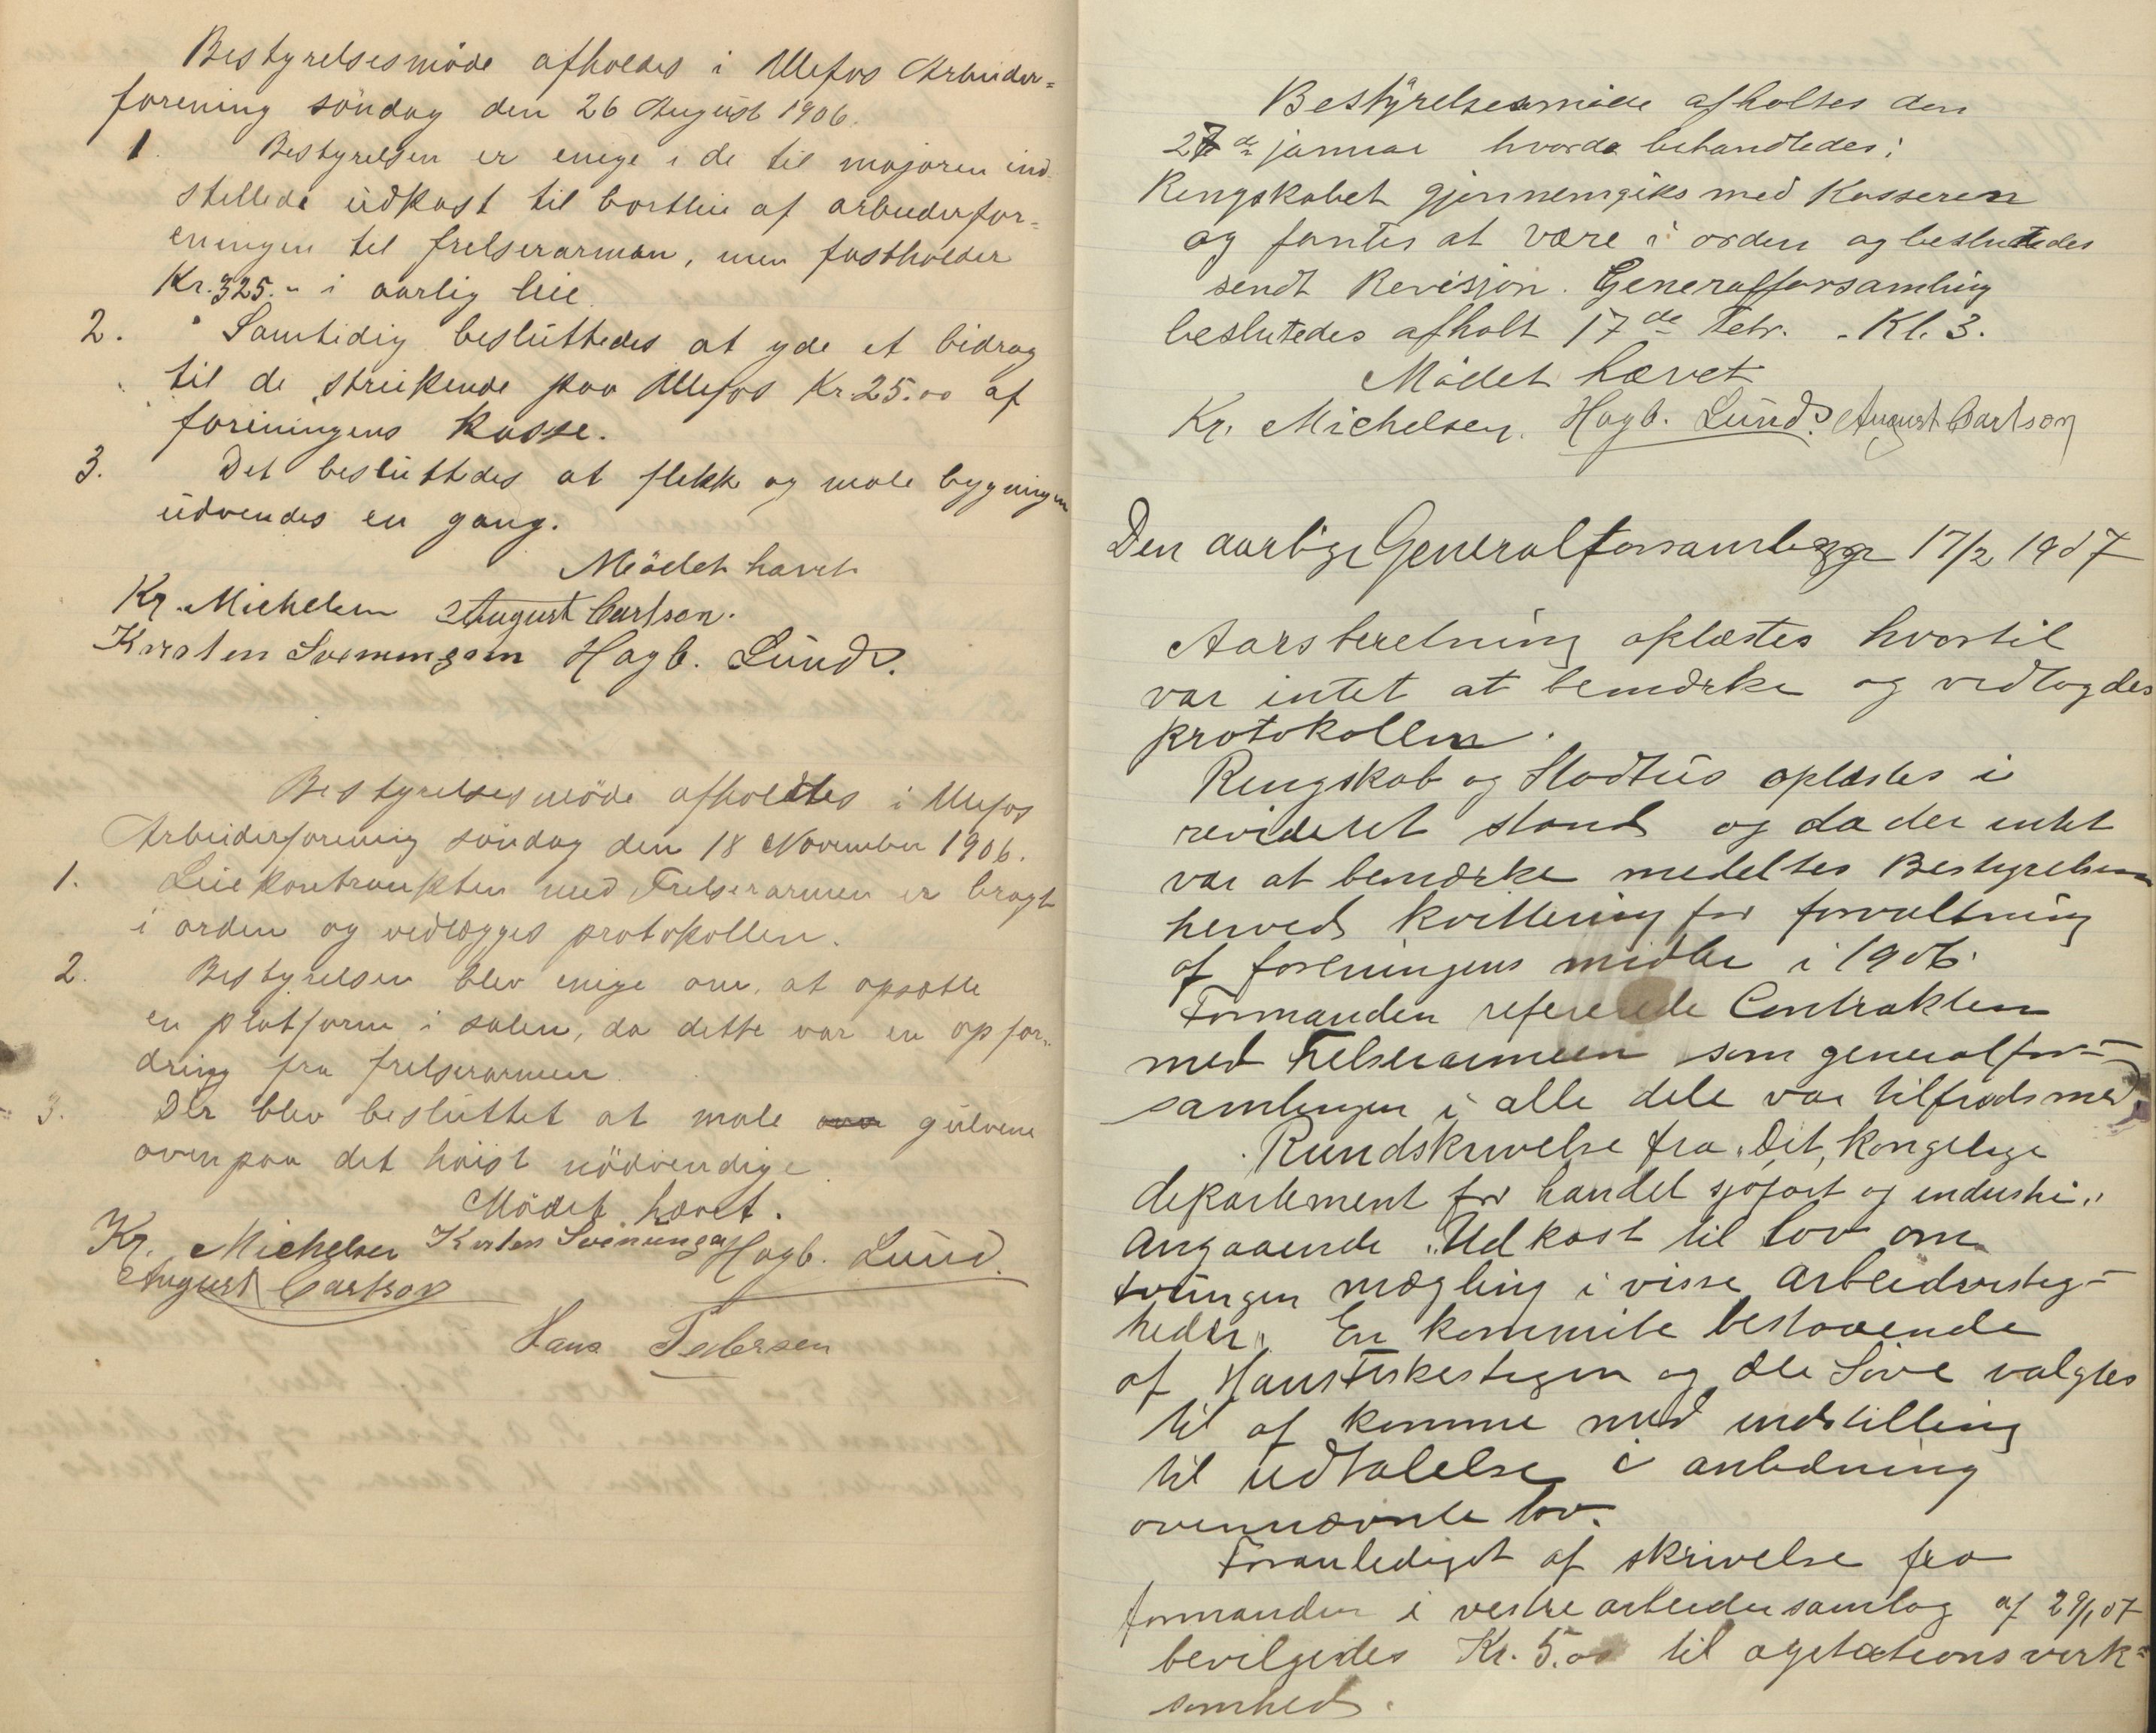 Bestyrelsesmöde afholdes i Ulefos Arbeider=
forening söndag den 26 August 1906.
1. Bestyrelsen er enige i de til majoren ind
stillede üdkast til bortleie af arbeiderfor=
eningen til frelserarmen, men fastholder
Kr. 325.- i aarlig leie.
2. Samtidig beslüttedes at yde et bidrag
til de streikende paa Ulefos Kr. 25.00 af
foreningens Kasse.
3. Det beslüttedes at flekke og male bygningen
üdvendes en gang.
Mödet hævet
Kr. Michelsen August Carlson.
Kirsten Svenningsen Hagb. Lünd.
Bestyrelsesmöde afholdtes i Ulefos
Arbeiderforening söndag den 18 November 1906.
1. Leiekontrankten med Frelserarmen er bragt
i orden og vedlægges protokollen.
2. Bestyrelsen blev enige om, at opsætte
en platform i salen, da dette var en opfor=
dring fra frelserarmen.
3. Der blev beslüttet at male gülvene
ovenpaa det höist nödvendige.
Mödet hævet.
Kr. Michelsen Kirsten Svenningsen Hagb. Lünd.
August Carlson
Hans Pedersen
Bestyrelsesmöde afholtes den
27de januar hvorda behandledes:
Rengskabet gjennemgiks med Kasseren
og fantes at være i orden og beslutedes
sendt Revisjon. Generalforsamling
beslutedes afholt 17de Febr. - Kl. 3.
Mödet hævet
Kr. Michelsen. Hagb. Lünd. August Carlson
Den aarlige Generalforsamling 17/2 1907
Aarsberetning oplæstes hvortil
var intet at bemærke og vedlagdes
protokollen.
Rengskab og Stadtüs oplæstes i
revideret stand og da der intet
var at bemærke medeltes Bestyrelsen
herved kvittering for forvaltning
af foreningens midler i 1906.
Formanden refererede Contrakten
med Frelserarmeen som generalfor=
samlingen i alle dele var tilfreds med
Rundskrivelse fra "Det kongelige
departement for handel sjöfart og industri"
angaaende "Udkast til lov om
tvungen mægling i visse arbeidsvistig=
heder". En kommite bestaaende
af Hans Fiskestegen og Ole Sove valgtes
til at komme med indstilling
til üdtalelse i anledning
ovennævnte lov.
Foranlediget af skrivelse fra
formanden i vestre arbeidersamlag af 29/1 07
bevilgedes Kr. 5.00 til agitationsverk=
somhed.